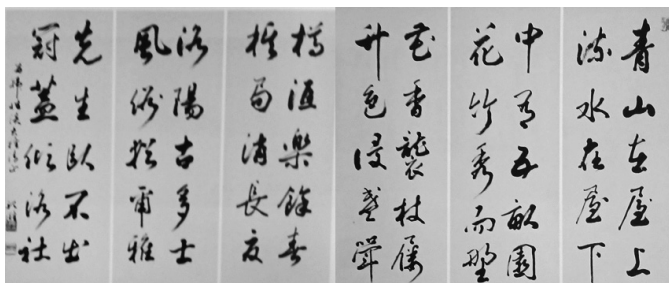 青山在屋上
流水在屋下
中有五畝園
花竹秀而野
花香襲杖屨
竹色侵盞斝
樽酒樂餘春
棋局消長夏
洛陽古多士
風俗猶爾雅
先生臥不出
冠蓋傾洛社